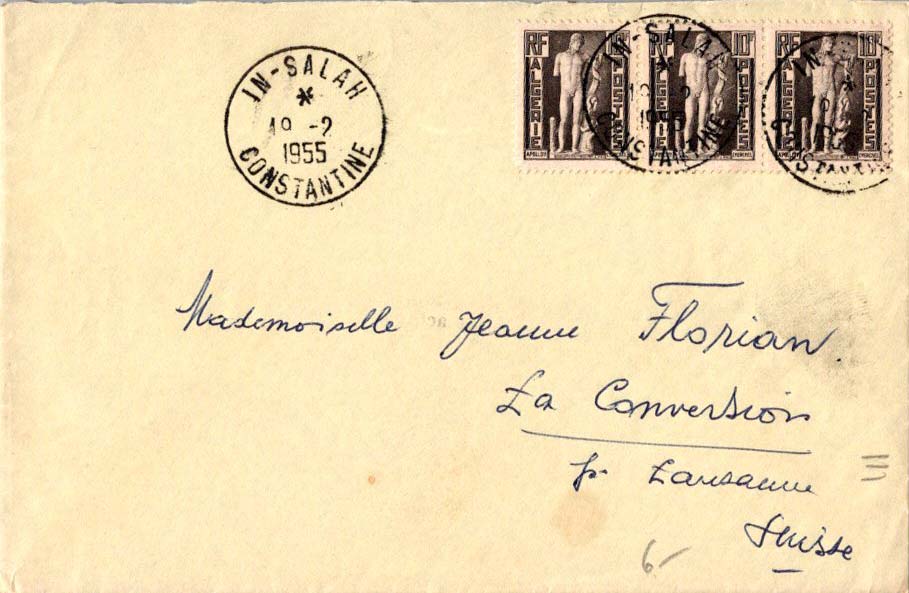 IN-SALAH
19 -2
1955
CONSTANTINE
RF 10F
ALGERIE POSTES
APOLLON
RF 10F
ALGERIE POSTES
RF 10F
ALGERIE POSTES
IN-SALAH
19 -2
1955
CONSTANTINE
IN-
CONSTANTINE
Mademoiselle Jeanne Florian
La Conversion
pr Lausanne
Suisse
6-